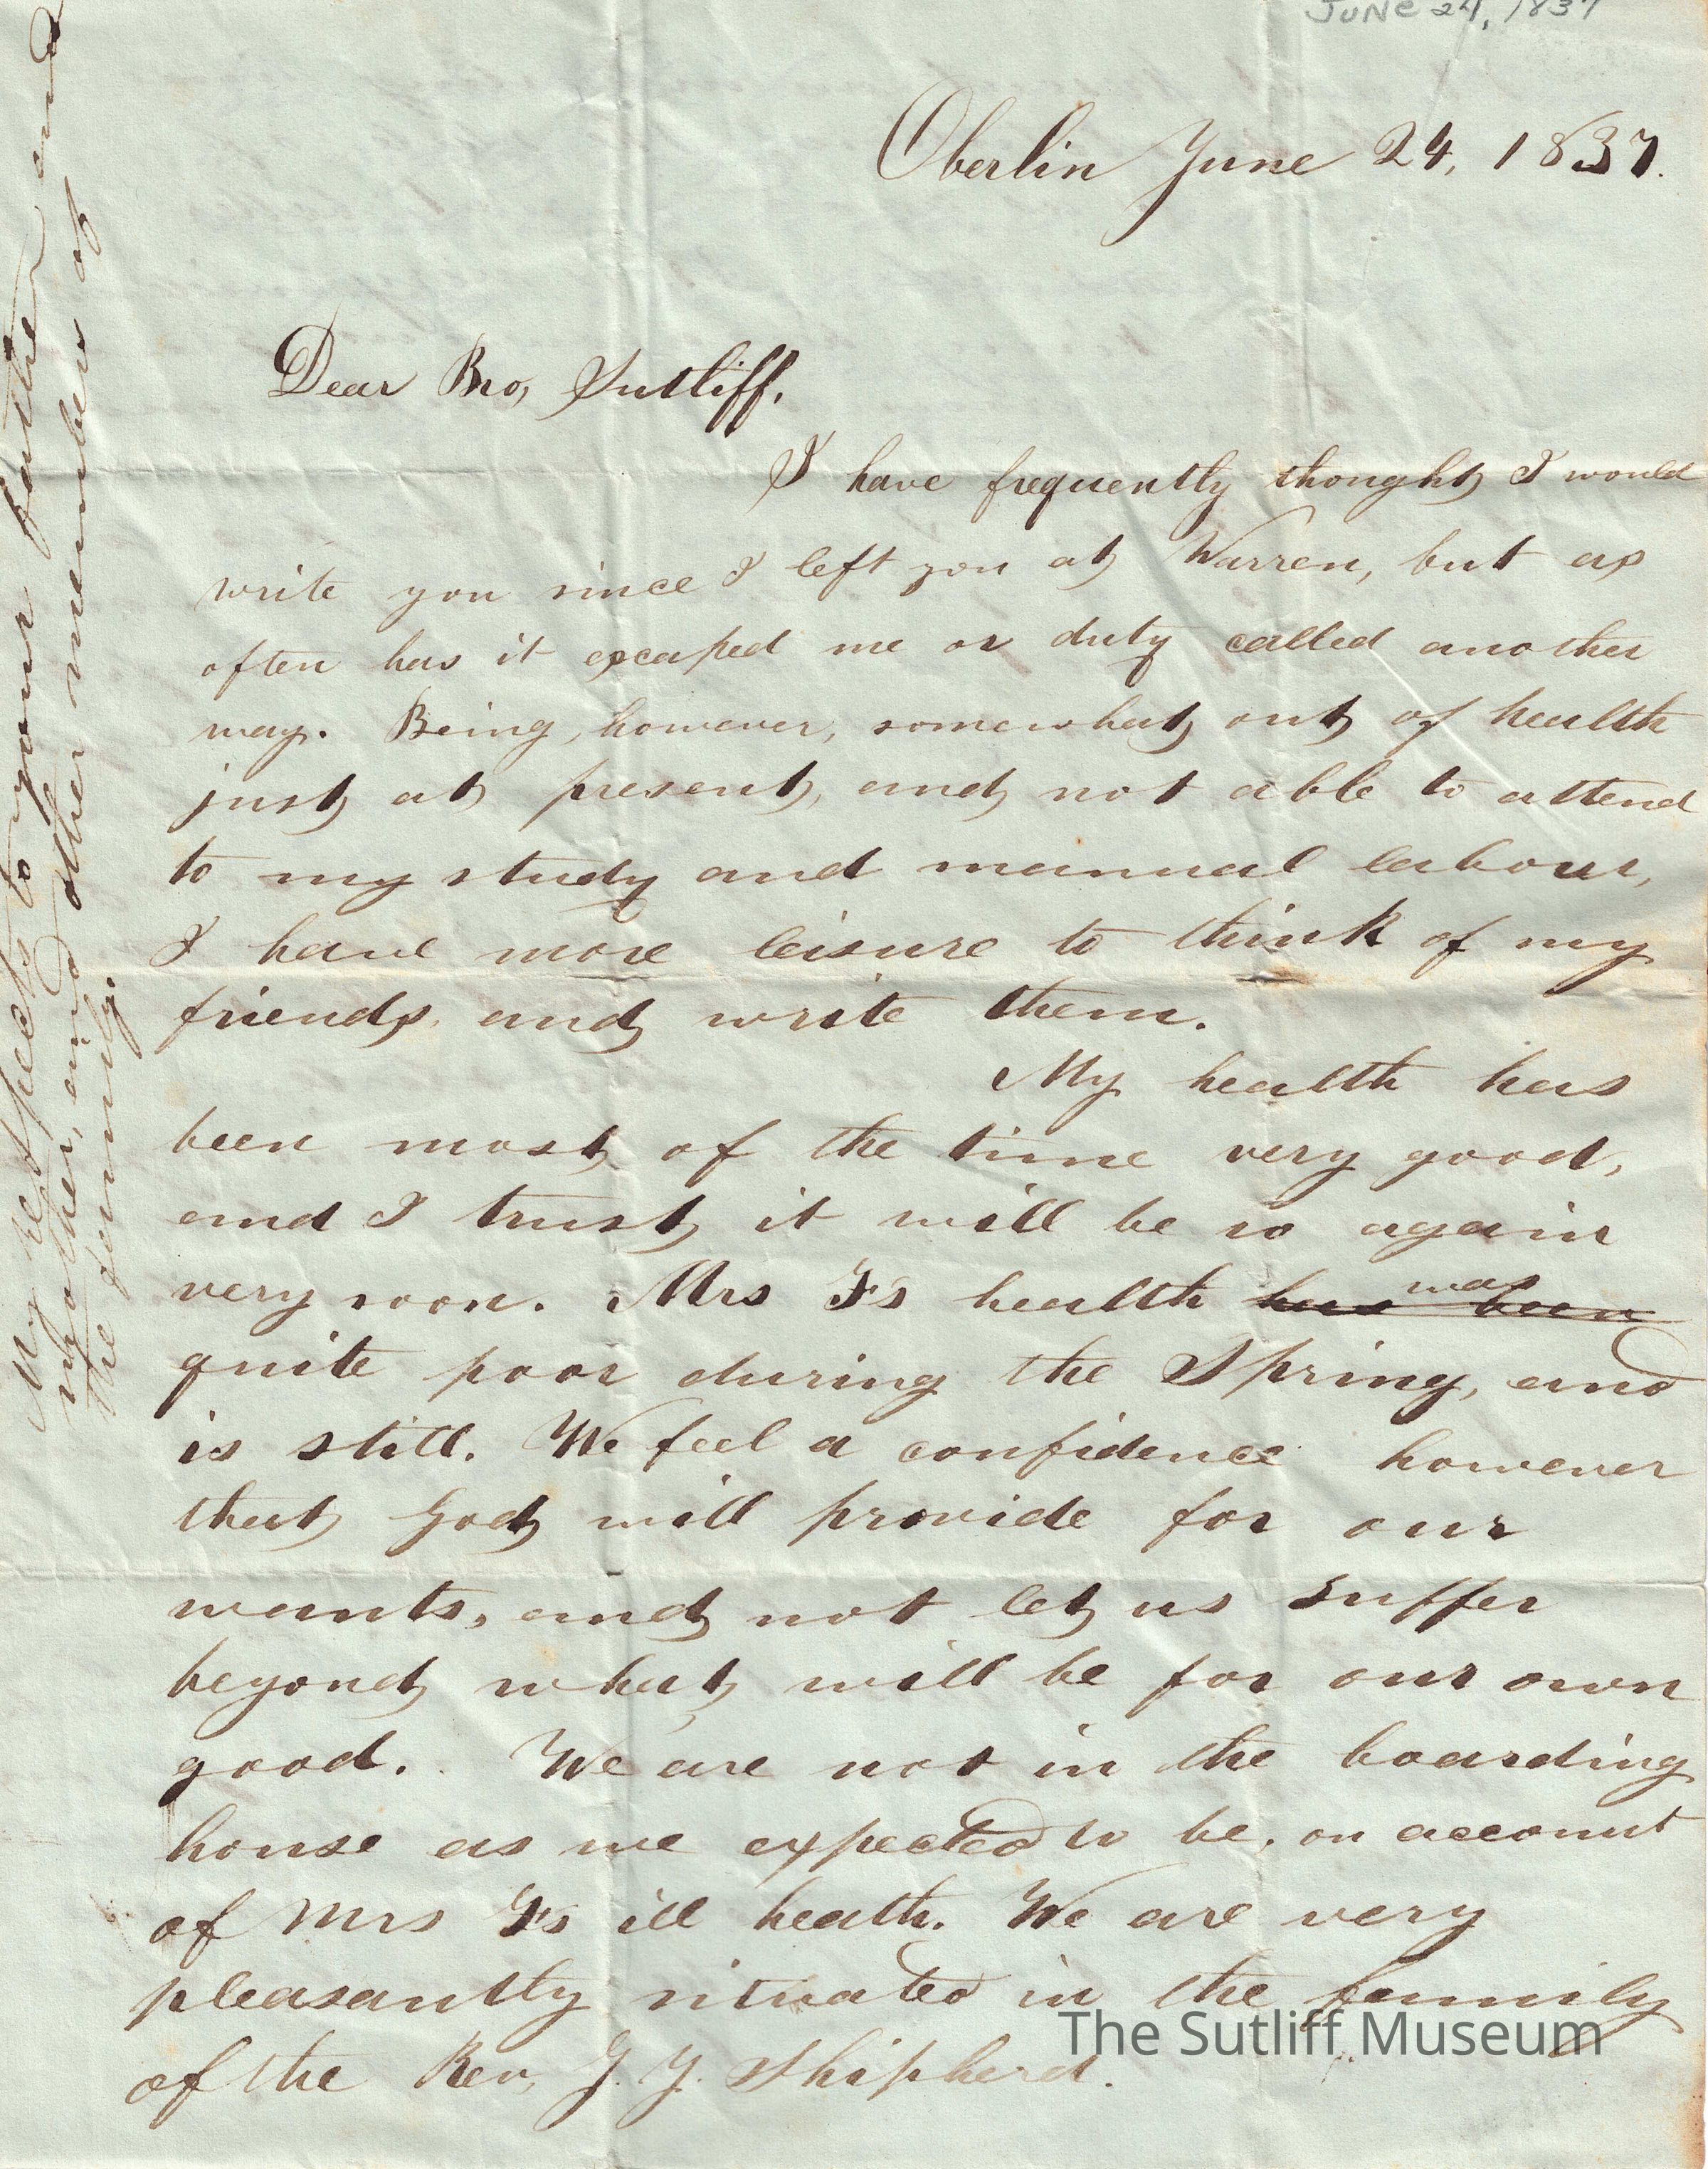 JUNE 24, 1837
Oberlin June 24, 1837.
Dear Bro, Sutliff.
I have frequently thought I would
write you since I left you at Warren, but as
often has it escaped me or duty called another
way. Being, however, somewhat out of health
just at present, and not able to attend
to my study and manual labour,
I have more leisure to think of my
friends, and write them.
My health has
been most of the time very good,
and I trust it will be so again
very soon. Mrs F's health has been was
quite poor during the Spring, and
is still. We feel a confidence however
that God will provide for our
wants, and not let us suffer
beyond what will be for our own
good. We are not in the boarding
house as we expected to be, on account
of Mrs F's ill heath. We are very
pleasantly situated in the family
of the Rev, J. J. Shipherd.
My respects to your father and
mother, and other members of
the family.
The Sutliff Museum